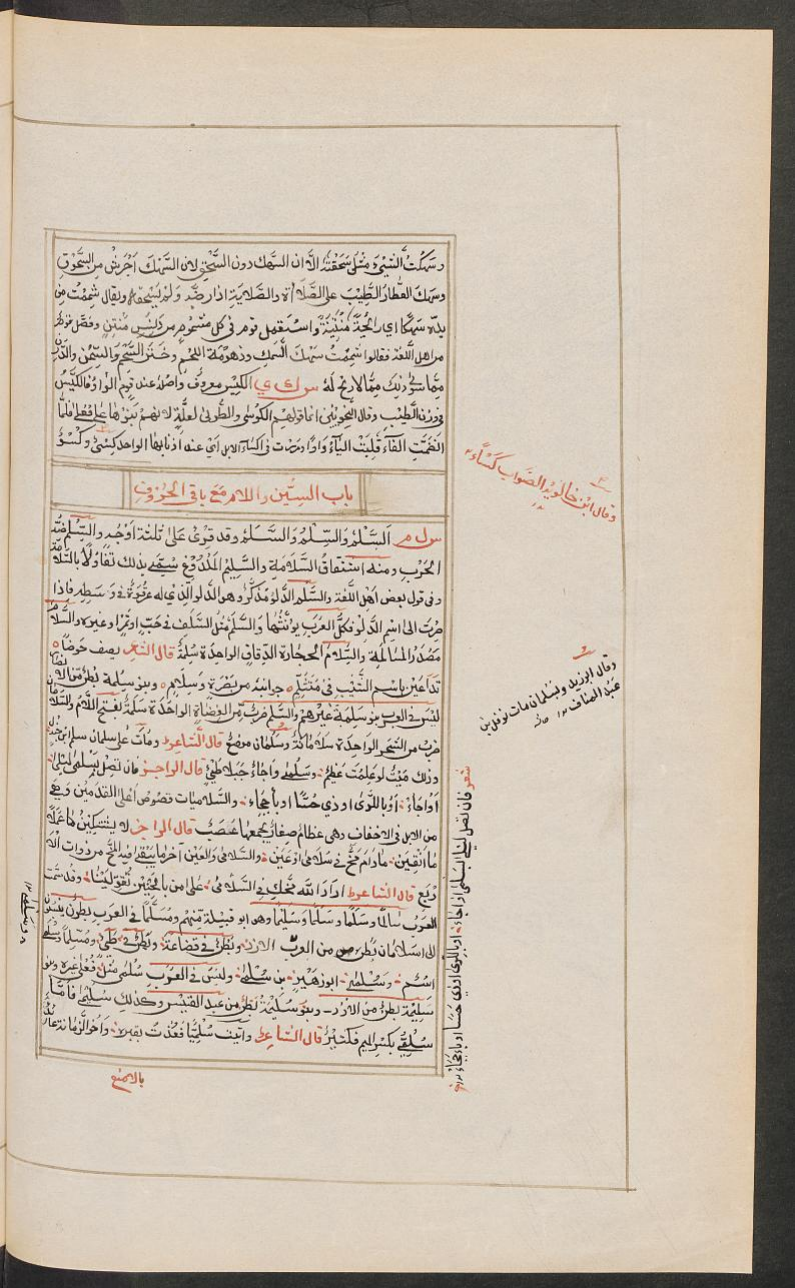 وسهكت الشيء مثل سحقته الا ان السهك دون السحق لان السهك اجرش من السحوق
وسهك العطار الطيب على الصلاءة والصلاية اذا رضه ولم يسحقه ويقال شممت من
يده سهكا اي رائحة منتنة واستعمل قوم في كل مشموم من دنس منتن وفصل قوم
من اهل اللغة فقالوا شممت سهك السمك وذهومة اللحم وخنز الشحم والسمن والدهن
مما سوى ذلك مما لا ريح له س ك ي الكيس معروف واصله عند قوم الواو فالكيس
في وزن الطيب وقال النحويون انما قولهم الكوسى والطوبى لعلة لانهم بنوها على فعلى فلما
انضمت الفاء قلبت الياء واوا
باب السين واللام مع باقي الحروف
س ل م السلم والسلم والسلم وقد قرئ على ثلثة اوجه والسلم ضد
الحرب ومنه اشتقاق السلامة والسليم الملدوغ سمي بذلك تفاؤلا بالسلامة
وفي قول بعض اهل اللغة والسلم الدلو مذكر وهو الدلو الذي له عرقوة في وسطه فاذا
صرت الى اسم الدلو فكل العرب يؤنثها والسلم مثل السلف في حب او تمر او غيره والسلام
مصدر المسالمة والسلام الحجارة الرقاق الواحدة سلمة قال الشاعر يصف حوضا
تداعين باسم الشيب في متثلم جوانبه من بصرة وسلام وبنو سلمة بطن من الانصار
ليس في العرب بنو سلمة غيرهم والسلم ضرب من العضاه الواحدة سلمة بفتح اللام والسلامان
ضرب من الشجر الواحدة سلامانة وسلمان موضع قال الشاعر ومات على سلمان سلم ابن جندل
وذلك ميت لو علمت عظيم وسلمى واجأ جبلا طيئ قال الراجز فان تصل بسلمى ليلى
او اجأ او باللوى او ذي حسا او يأججا والسلاميات فصوص اعلى القدمين وهي
من الابل في الاخفاف وهي عظام صغار يجمعها عصب قال الراجز لا يشتكين عملا
ما انقين ما دام مخ في سلامى او عين والسلامى والعين آخر ما يبقى فيه المخ من ذوات الا
ربع قال الشاعر اراد الله مخك في السلامى على من بالحنين تعولينا وقد سمت
العرب سالما وسلما وسليما وهو ابو قبيلة منهم ومسلما في العرب بطون ينسبون
الى اسلامان بطن من العرب الازد وبطن في قضاعة وبطن في طيئ ومسلما وسلم
اسم وسلمى ابو زهير بن سلمى وليس في العرب سلمى مثل فعلى غيره وبنو
سليمة بطن من الازد وبنو سليمة بطن من عبد القيس وكذلك سليم فاما
سلمي بكسر الميم فكثير قال الشاعر واتيت سلميا فعذت بقبره واخو الزمانة عائذ
بالامنع
وقال ابن خالويه الصواب كساء
وقال ابو زيد ولسلمان مات نوفل بن
عبد المناف
شعر فان تصل ليلى بسلمى او اجأ او باللوى او ذي حسا او يأججا
وسلمى